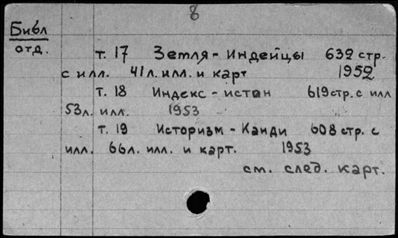 8
Библ
отд.
т. 17 Земля - Индейцы 632 стр.
с илл. 41 л. илл. и карт 1952
т. 18 Индекс - истан 619 стр. с илл
53л. илл. 1953
т. 19 Историзм - Канди 608 стр. с
илл. 66л. илл. и карт. 1953
см. след. карт.